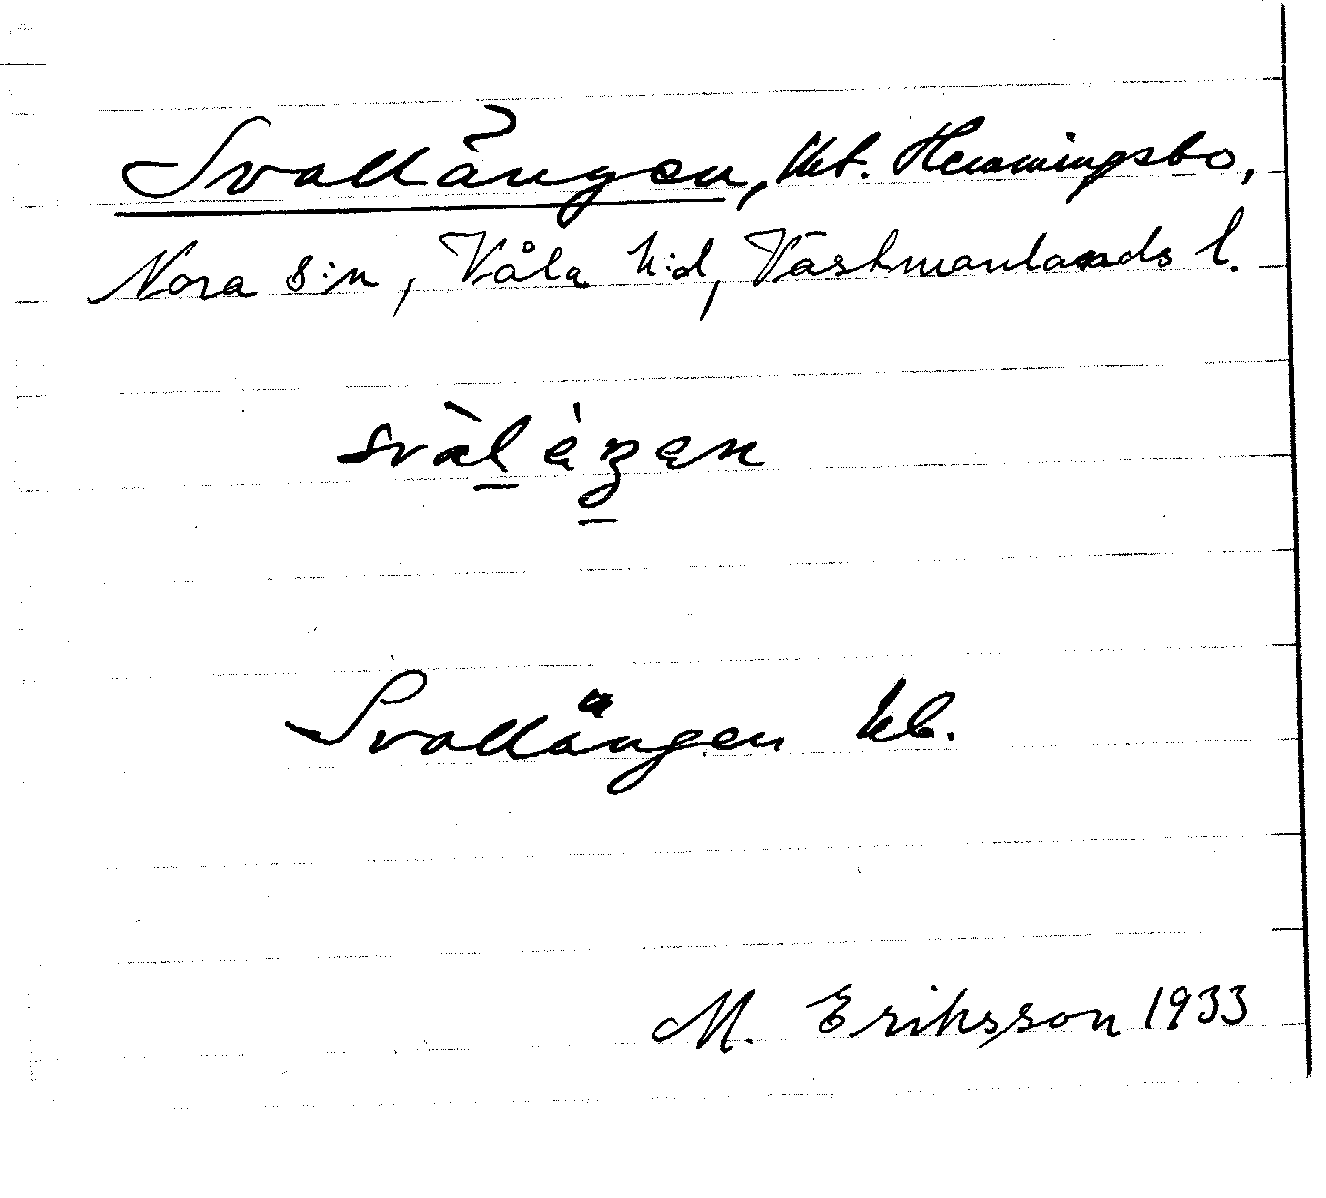 Svallängen, kt. Hemmingsbo,
Nora s:n, Våla h:d, Västmanlands l.
Svallängen kb.
M. Eriksson 1933